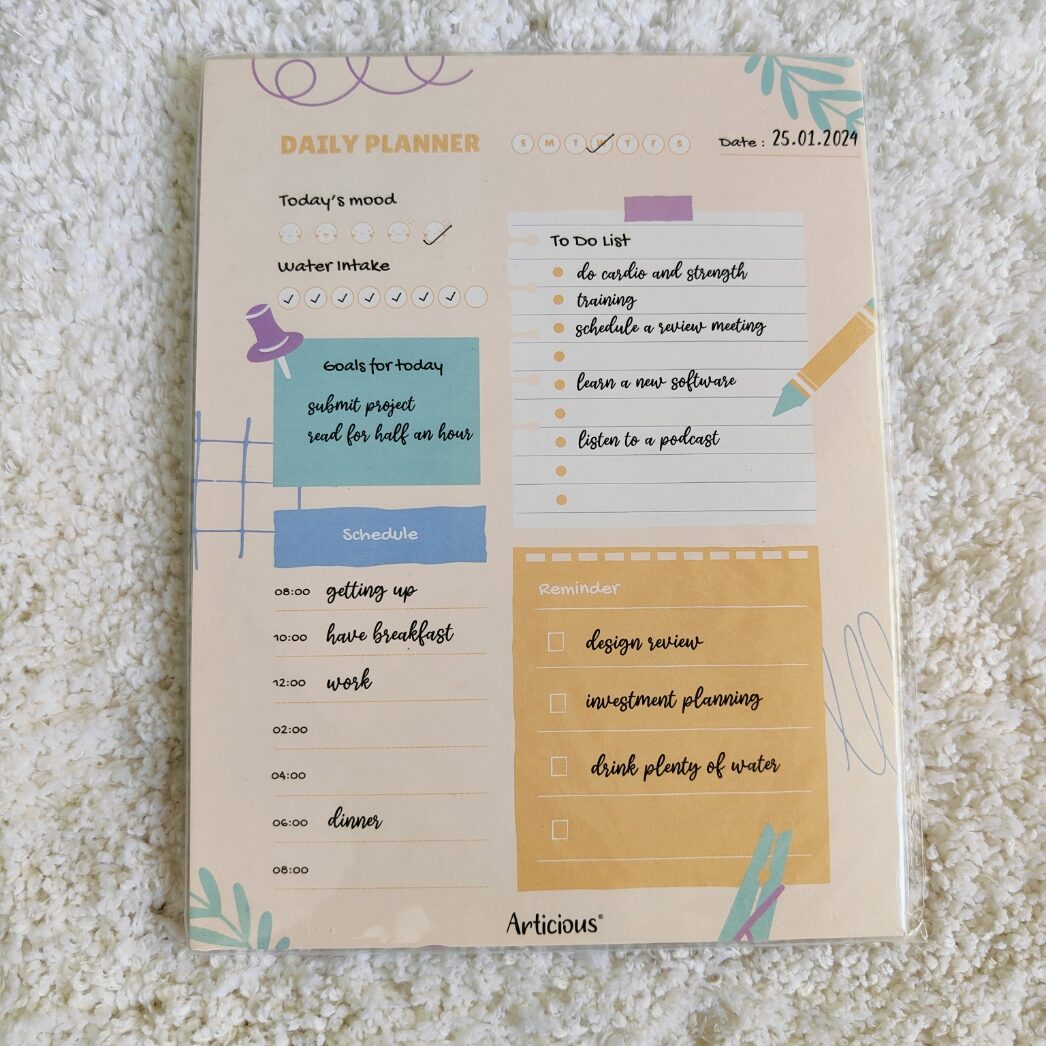 DAILY PLANNER
S M T W T F S
Date : 25.01.2024
Today's mood
Water Intake
Goals for today
submit project
read for half an hour
Schedule
08:00 getting up
10:00 have breakfast
12:00 work
02:00
04:00
06:00 dinner
08:00
To Do List
do cardio and strength
training
schedule a review meeting
learn a new software
listen to a podcast
Reminder
design review
investment planning
drink plenty of water
Articious®